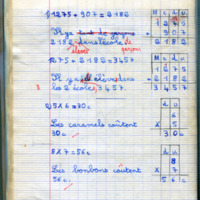 1) 1275 + 907 = 2182
Il y a tant de garçons
2182 dans l'école de garçons
élèves
1275 + 2182 = 3457
Il y a élèves dans
les 2 écoles 3457.
2) 5 X 6 = 30c
Les caramels coûtent
30c.
8 X 7 = 56c
Les bonbons coûtent
56c.
M c d u
1 2 7 5
+ 9 0 7
2 1 8 2
M c d u
1 2 7 5
+ 2 1 8 2
3 4 5 7
c d u
5
X 6
3 0 c
d u
8
X 7
5 6 c